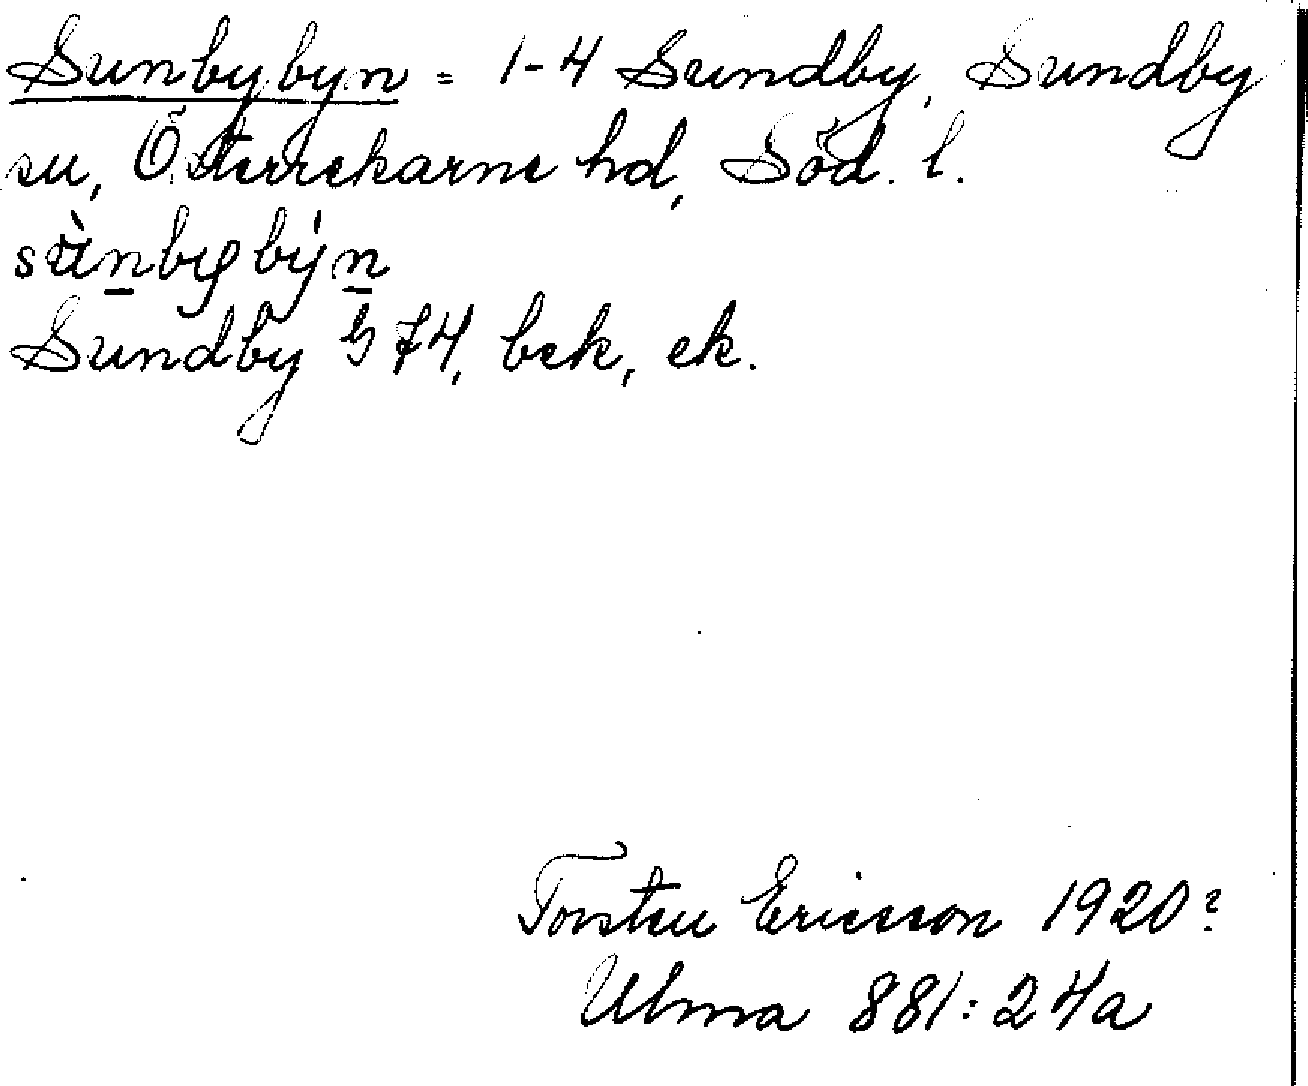 Sunbybyn = 1-4 Sundby, Sundby
sn, Österrekarne hd, Söd. l.
sùnbybýn
Sundby § 74, bek, ek.
Torsten Ericsson 1920?
Ulma 881:24a